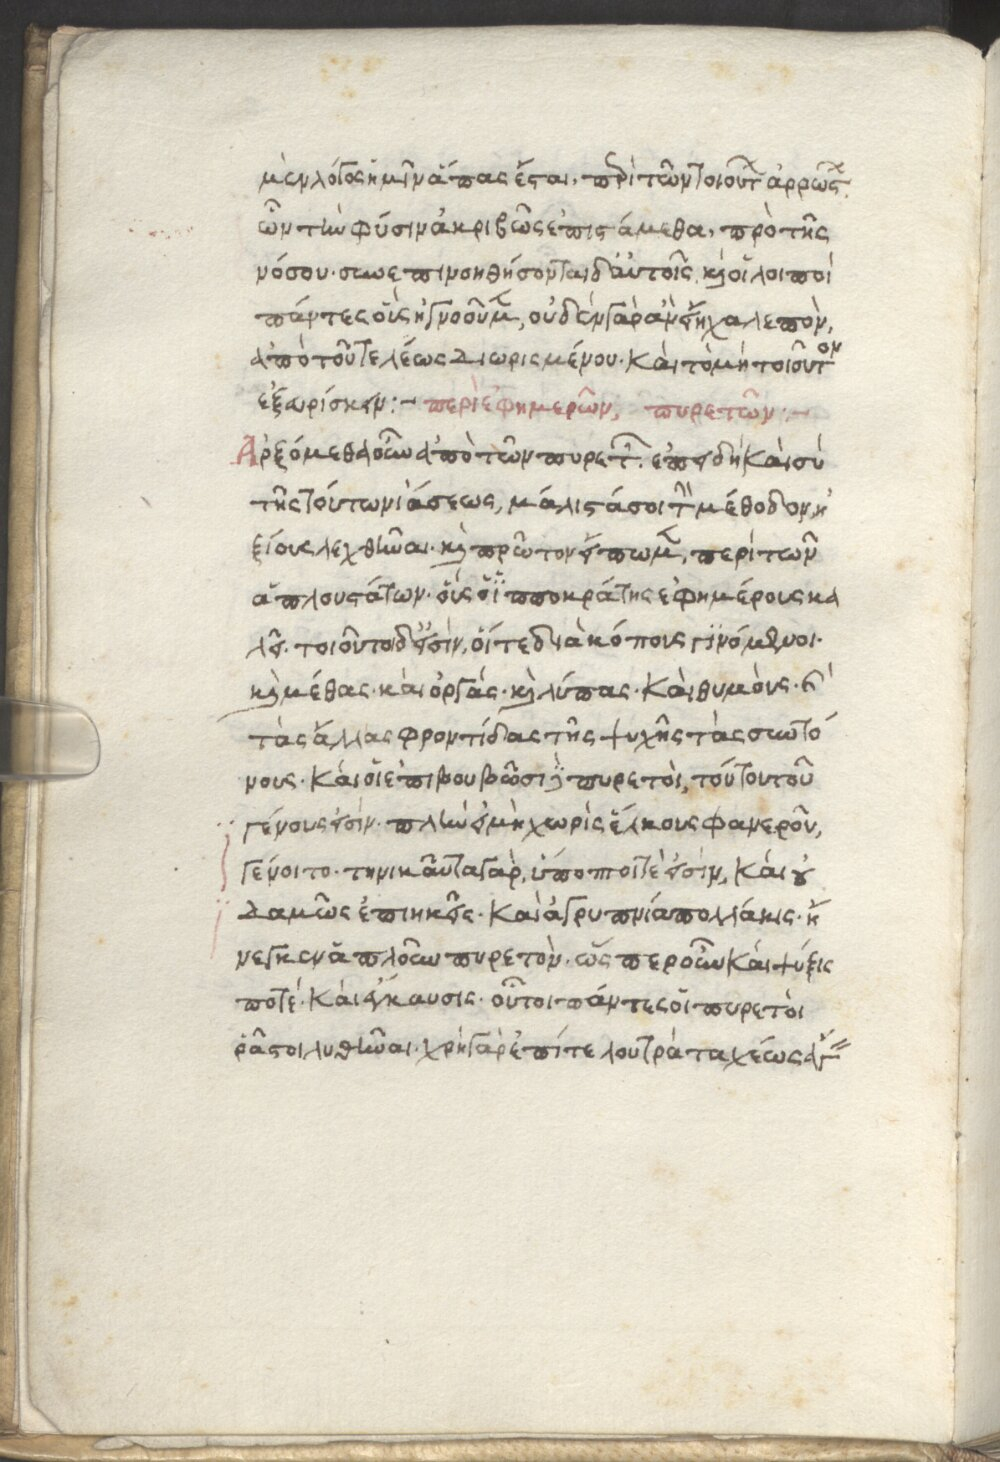 μὲν λόγος ἡμῖν ἅπας ἔσται, περὶ τῶν τοιούτ ἀρρώστ
ὧν τὴν φύσιν ἀκριβῶς ἐπιστάμεθα, πρὸ τῆς
νόσου· συνεπινοηθήσονται δ' αὐτοῖς, καὶ οἱ λοιποὶ
πάντες οὓς ἠγνοοῦμ, οὐδὲν γὰρ ἂν εἴη χαλεπὸν,
ἀπὸ τοῦ τελέως διωρισμένου· καὶ τὸ μὴ τοιοῦτον
ἐξευρίσκειν:– περὶ ἐφημερῶν, πυρετῶν:–
Ἀρξόμεθα οὖν ἀπὸ τῶν πυρετ. ἐπειδὴ καὶ σὺ
τῆς τούτων ἰάσεως, μάλιστά σοι τὴν μέθοδον ἠ
ξίους λεχθῆναι· καὶ πρῶτον εἴπωμ, περὶ τῶν
ἁπλουστάτων· οὓς ὁ ἱπποκράτης ἐφημέρους κα
λεῖ· τοιοῦτοι δ' εἰσὶν, οἵ τε διὰ κόπους γινόμενοι·
καὶ μέθας· καὶ ὀργάς· καὶ λύπας· καὶ θυμοὺς· καὶ
τὰς ἄλλας φροντίδας τῆς ψυχῆς τὰς συντό
νους· καὶ οἱ ἐπὶ βουβῶσι πυρετοὶ, τούτου τοῦ
γένους εἰσὶν· πλὴν εἰ μὴ χωρὶς ἕλκους φανεροῦ,
γένοιτο· τηνικαῦτα γὰρ, ὕποπτοί τέ εἰσιν, καὶ οὐ
δαμῶς ἐπιεικεῖς· καὶ ἀγρυπνία πολλάκις· ἤ
νεγκεν ἁπλοῦν πυρετὸν· ὥσπερ οὖν καὶ ψύξις
ποτὲ· καὶ ἔγκαυσις· οὗτοι πάντες οἱ πυρετοὶ
ῥᾷστοι λυθῆναι· χρὴ γὰρ ἐπί τε λουτρὰ ταχέως ἄγειν